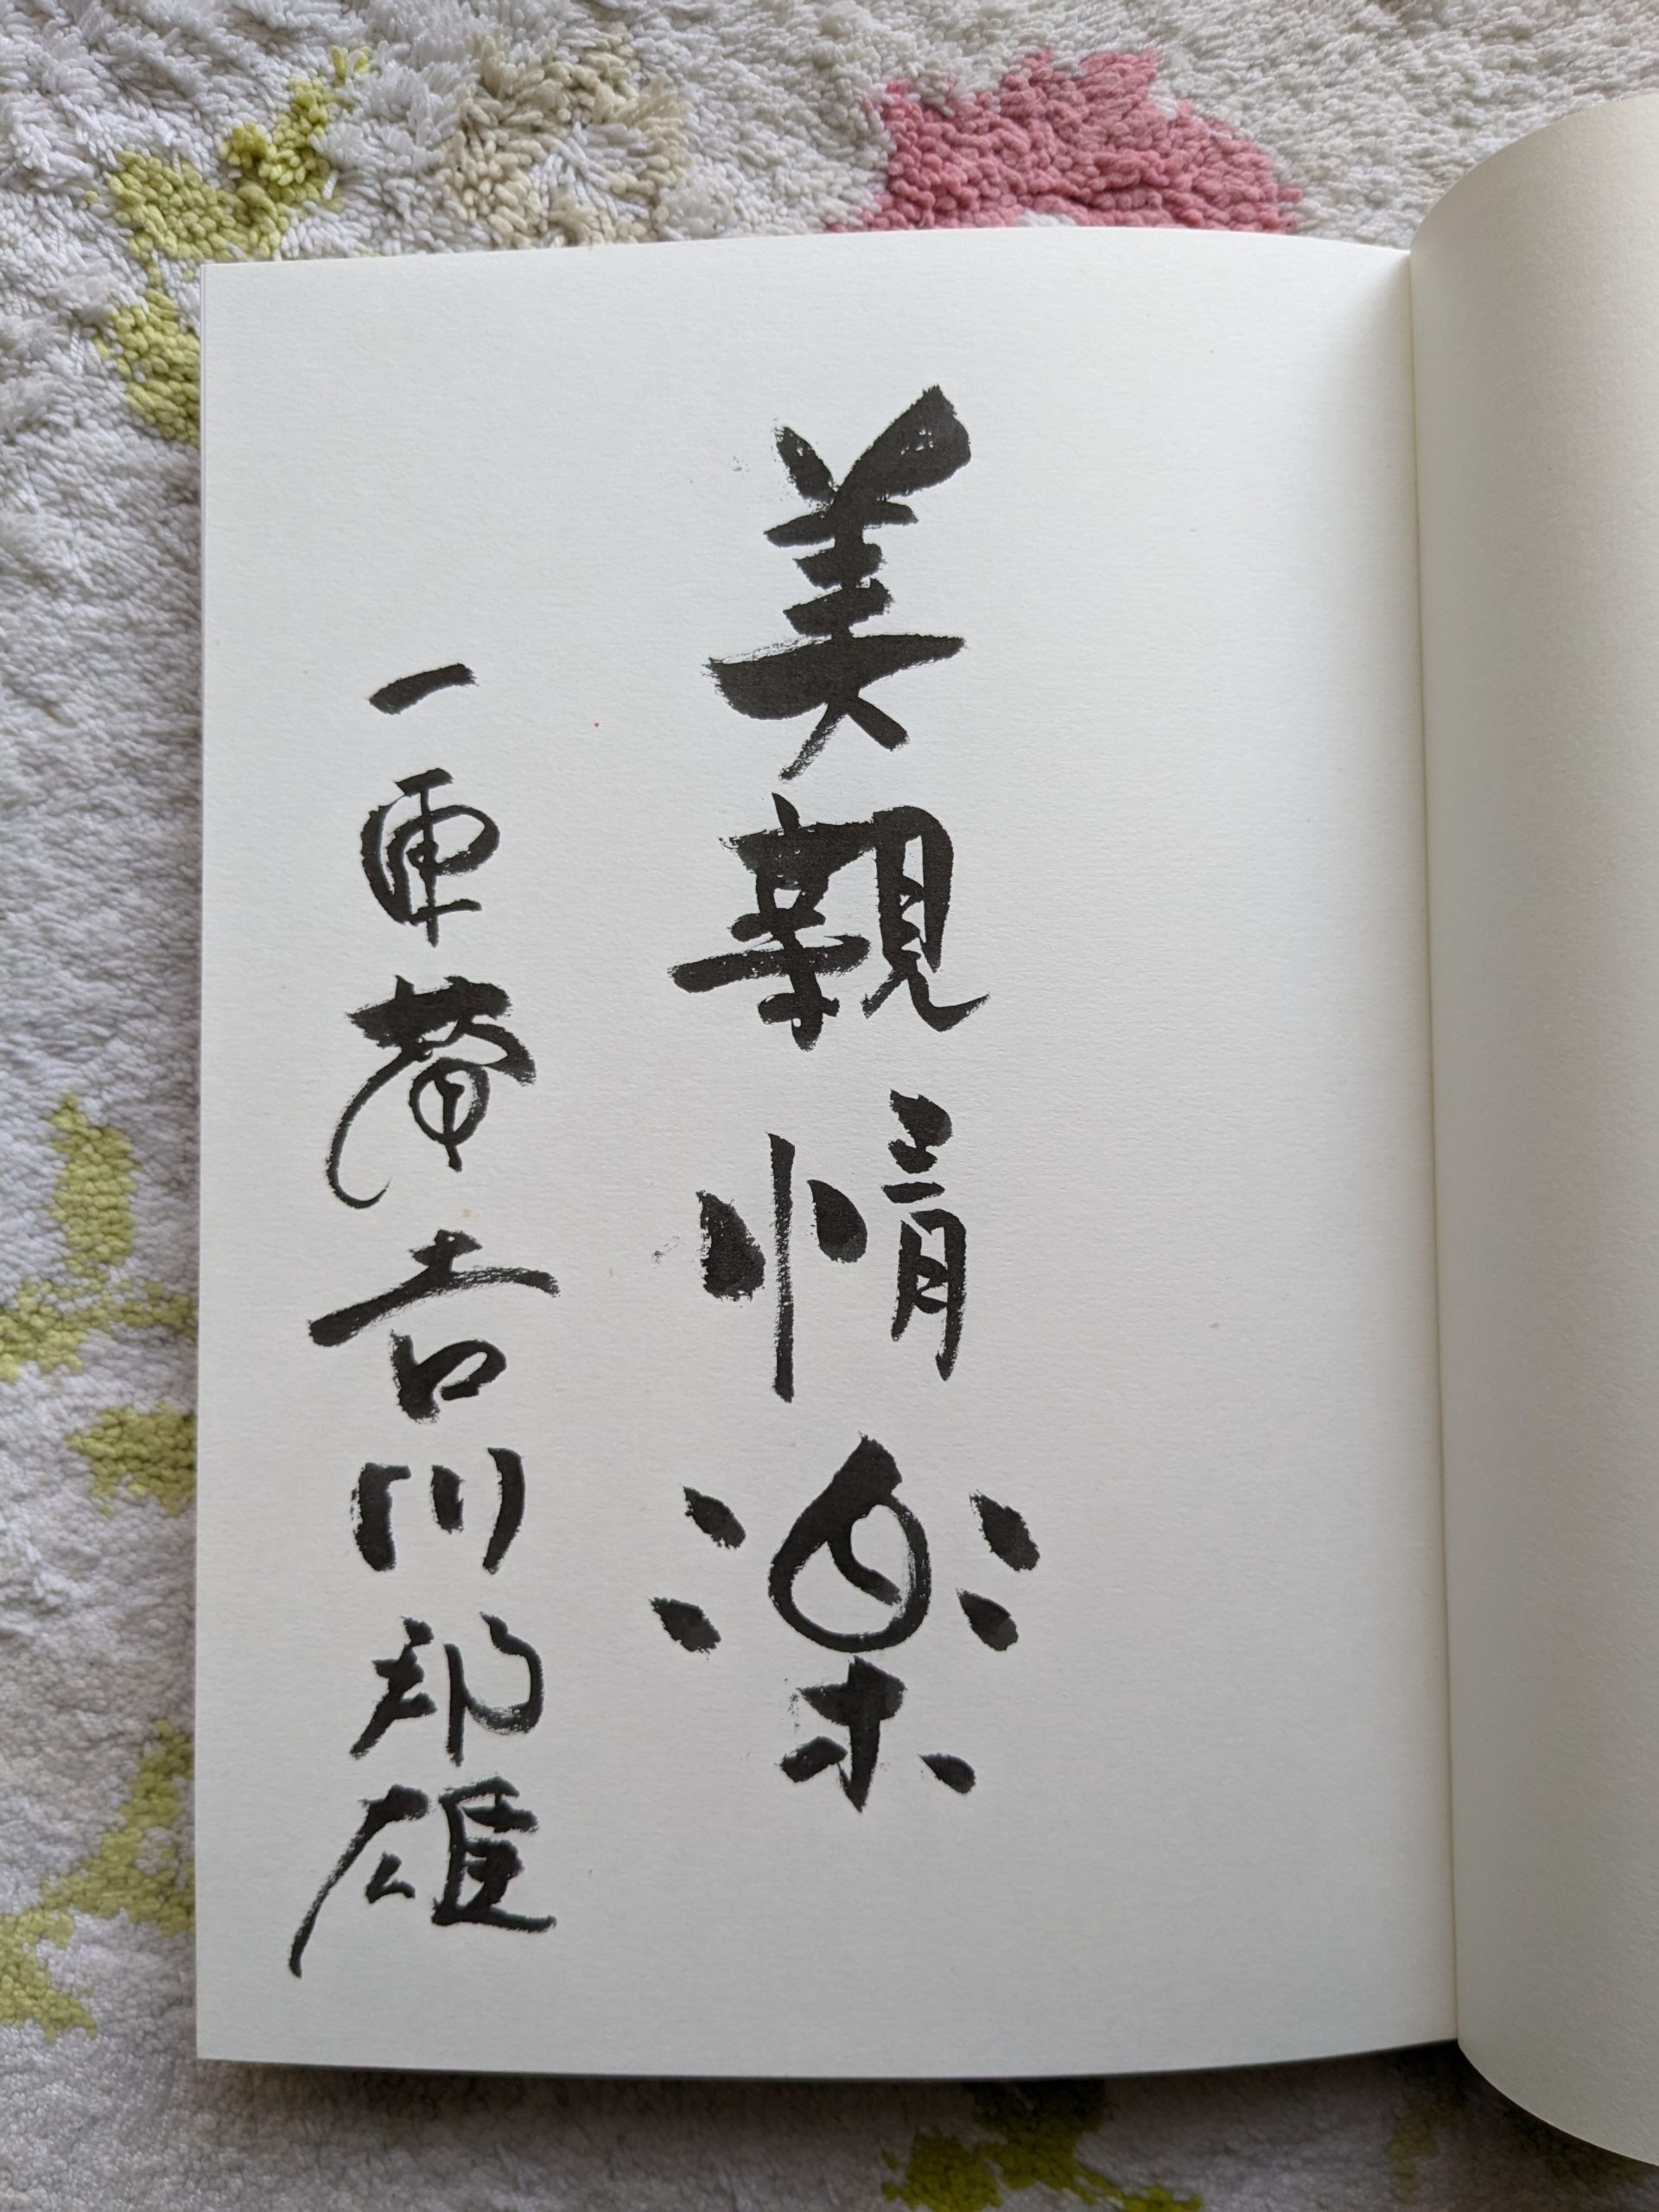 美親情楽
一菴吉川邦雄